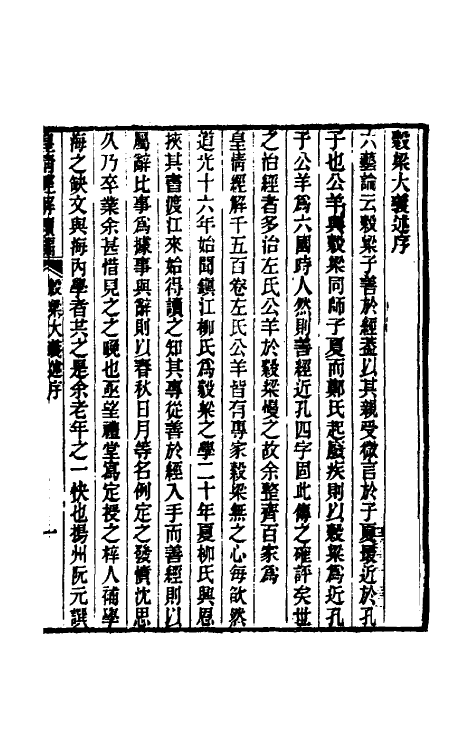 穀梁大義述序
六藝論云穀梁子善於經葢以其親受微言於子夏最近於孔
子也公羊與穀梁同師子夏而鄭氏起廢疾則以穀梁爲近孔
子公羊爲六國時人然則善經近孔四字固此傳之確評矣世
之治經者多治左氏公羊於穀梁慢之故余整齊百家爲
皇清經解千五百卷左氏公羊皆有專家穀梁無之心每欲然
道光十六年始聞鎭江柳氏爲穀梁之學二十年夏柳氏興恩
挾其書渡江來始得讀之知其專從善於經入手而善經則以
屬辭比事爲據事與辭則以春秋日月等名例定之發憤沈思
久乃卒業余甚惜見之之晚也亟望禮堂寫定授之梓人補學
海之缺文與海內學者共之是余老年之一快也揚州阮元譔
皇清經解續編
穀梁大義述序
一